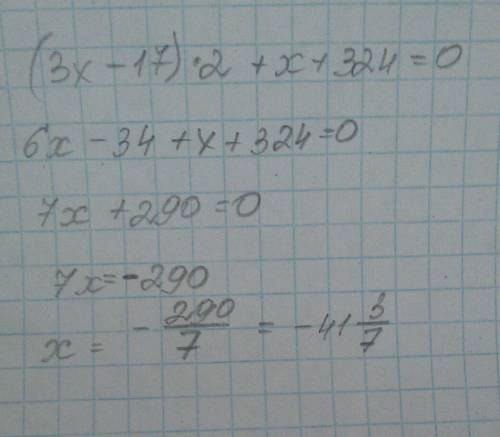 (3x - 17) · 2 + x + 324 = 0
6x - 34 + x + 324 = 0
7x + 290 = 0
7x = - 290
x = - 290/7 = - 41 3/7